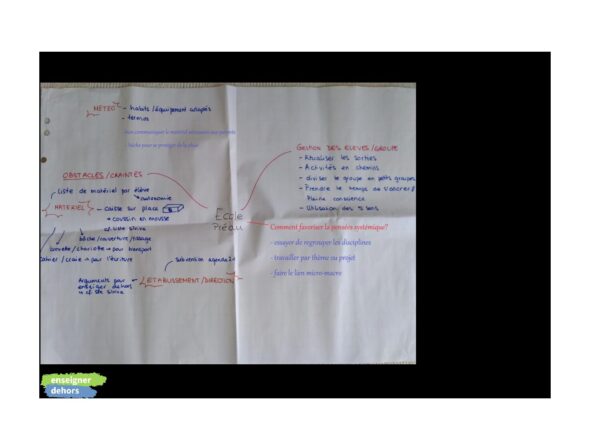 METEO - habits/équipement adaptés
- thermos
- bien communiquer le matériel nécessaire aux parents
- bâche pour se protéger de la pluie
OBSTACLES/CRAINTES
Liste de matériel par élève
→ autonomie
MATERIEL - caisse sur place
+ coussin en mousse
+ cf liste
bâche/couverture/
/chariotte → pour transport
/craie → pour l'écriture
École
Préau
GESTION DES ELEVES/GROUPE
- Ritualiser les sorties
- Activités en chemins
- diviser le groupe en petits groupes
- Prendre le temps de s'ancrer/
Pleine conscience
- Utilisation des 5 sens
Comment favoriser la pensées systémique?
- essayer de regrouper les disciplines
- travailler par thème ou projet
- faire le lien micro-macro
Subvention agenda
Arguments pour
enseigner dehors
ETABLISSEMENT/DIRECTION
enseigner
dehors